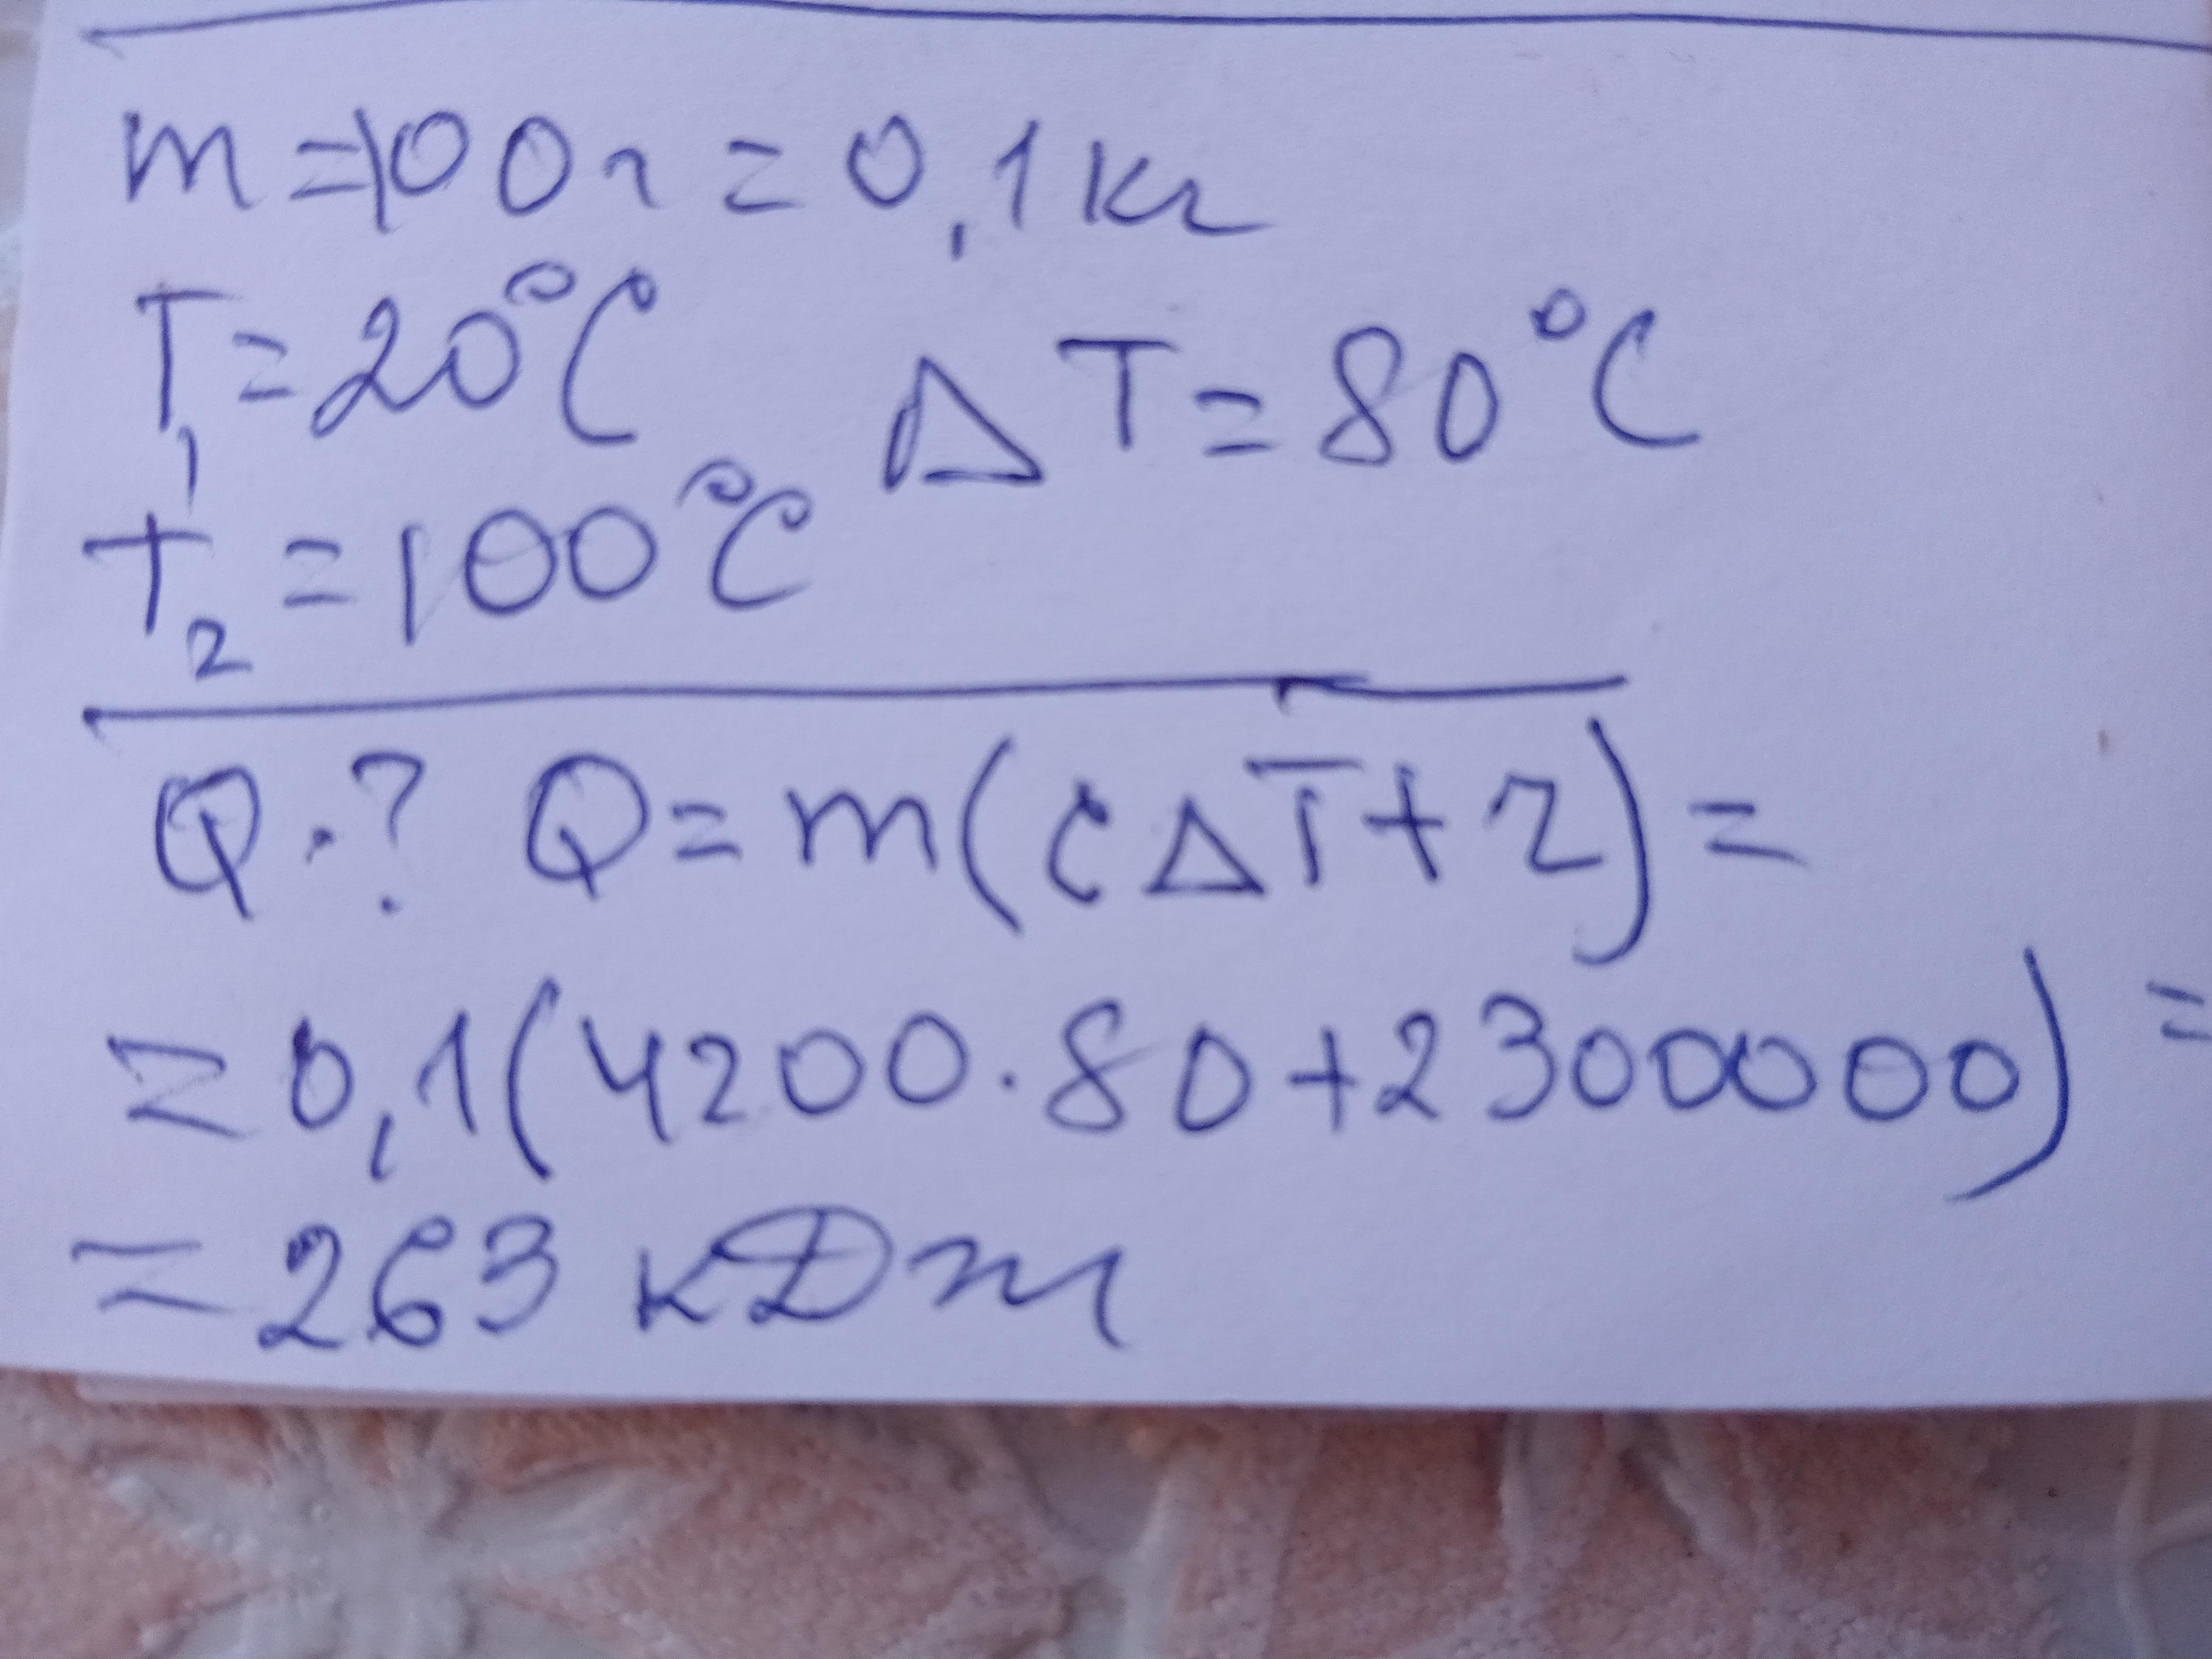 m=100г=0,1кг
T₁=20°C ΔT=80°C
T₂=100°C
Q.? Q=m(cΔT+r)=
=0,1(4200·80+2300000)=
=263 кДж